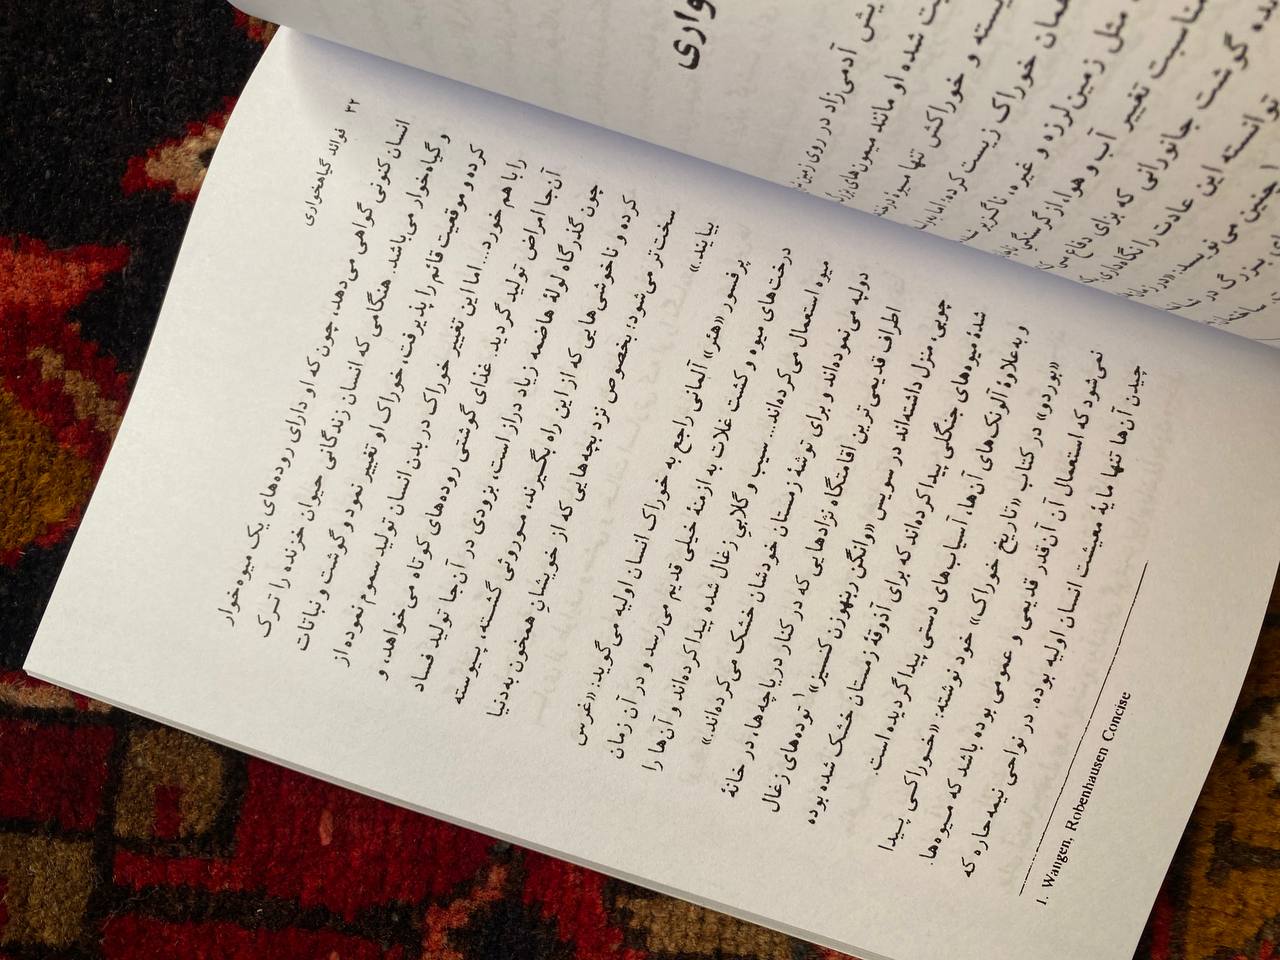 ۳۲ فوائد گیاهخواری
انسان کنونی گواهی می‌دهد، چون که او دارای روده‌های یک میوه‌خوار
و گیاه‌خوار می‌باشد. هنگامی که انسان زندگانی حیوان خزنده را ترک
کرده و موقعیت قائم را پذیرفت، خوراک او تغییر نمود و گوشت و نباتات
را با هم خورد... اما این تغییر خوراک در بدن انسان تولید سموم نموده از
آن‌جا امراض تولید گردید. غذای گوشتی روده‌های کوتاه می خواهد، و
چون گذرگاه لولهٔ هاضمه زیاد دراز است، بزودی در آن‌جا تولید فساد
کرده و ناخوشی‌هایی که از این راه بگیرند، موروثی گشته، پیوسته
سخت‌تر می‌شود؛ بخصوص نزد بچه‌هایی که از خویشانِ همخون به دنیا
بیایند.»
پرفسور «هئر» آلمانی راجع به خوراک انسان اولیه می‌گوید: «غرس
درخت‌های میوه و کشت غلات به ازمنهٔ خیلی قدیم می‌رسد و در آن زمان
میوه استعمال می‌کرده‌اند... سیب و گلابیِ زغال شده پیدا کرده‌اند و آن‌ها را
دولپه می‌نموده‌اند و برای توشهٔ زمستان خودشان خشک می‌کرده‌اند.»
اطراف قدیمی‌ترین اقامتگاه نژادهایی که در کنار دریاچه‌ها، در خانهٔ
چوبی، منزل داشته‌اند در سویس «وانگن ربنهوزن کنسیز»۱ توده‌های زغال
شدهٔ میوه‌های جنگلی پیدا کرده‌اند که برای آذوقهٔ زمستان خشک شده بوده
و به علاوهٔ آلونک‌های آن‌ها، آسیاب‌های دستی پیدا گردیده است.
«بوردو» در کتاب «تاریخ خوراک» خود نوشته: «خوراکی پیدا
نمی‌شود که استعمال آن آن‌قدر قدیمی و عمومی بوده باشد که میوه‌ها.
چیدن آن‌ها تنها مایهٔ معیشت انسان اولیه بوده. در نواحی نیمه‌حاره که
1. Wangen, Robenhausen Concise
آدمی‌زاد در روی زمین
شده او مانند میمون‌های
و خوراکش تنها میوه
همان خوراک زیست کرده
مثل زمین‌لرزه و غیره، ناگزیر
تغییر آب و هوا، از گرسنگی
گوشت جانورانی که برای دفاع
توانسته این عادت را نگاهداری
چنین می‌نویسد: «در زمان